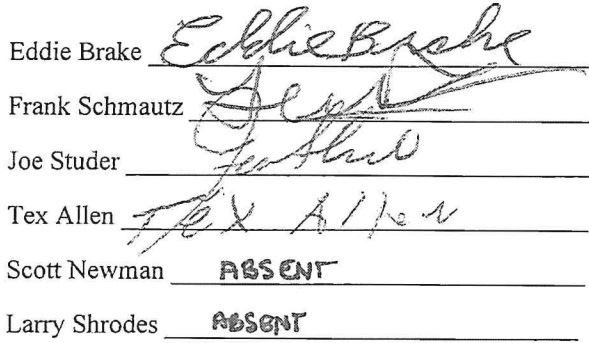 Eddie Brake Eddie Brake
Frank Schmautz
Joe Studer
Tex Allen Tex Allen
Scott Newman ABSENT
Larry Shrodes ABSENT